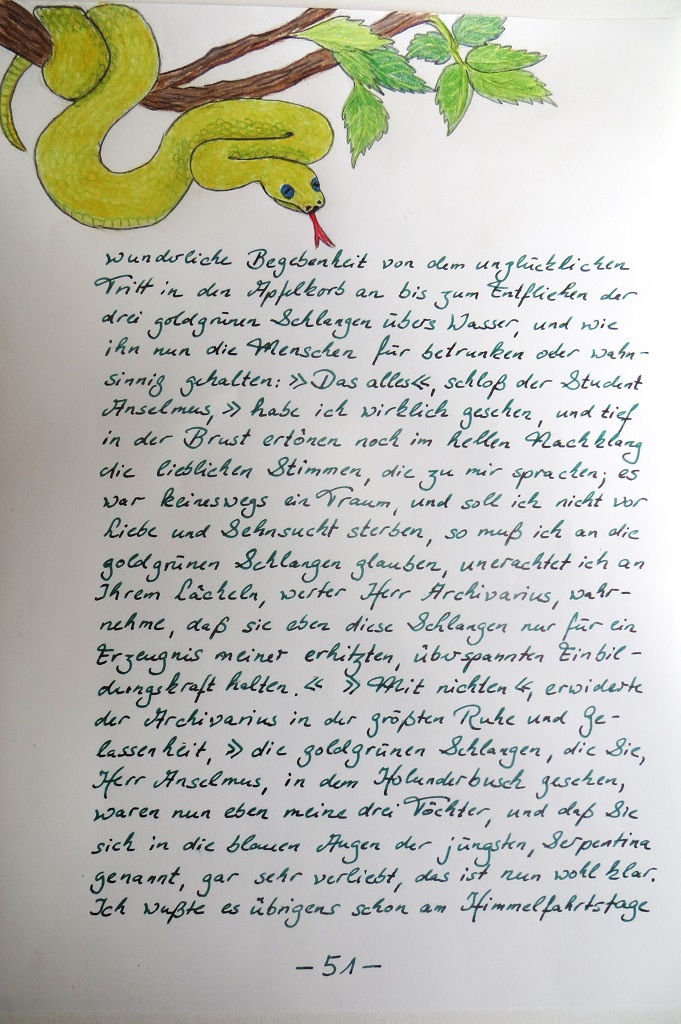 wunderliche Begebenheit von dem unglücklichen
Tritt in den Apfelkorb an bis zum Entfliehen der
drei goldgrünen Schlangen übers Wasser, und wie
ihn nun die Menschen für betrunken oder wahn-
sinnig gehalten: »Das alles«, schloß der Student
Anselmus, »habe ich wirklich gesehen, und tief
in der Brust ertönen noch im hellen Nachklang
die lieblichen Stimmen, die zu mir sprachen; es
war keineswegs ein Traum, und soll ich nicht vor
Liebe und Sehnsucht sterben, so muß ich an die
goldgrünen Schlangen glauben, unerachtet ich an
Ihrem Lächeln, werter Herr Archivarius, wahr-
nehme, daß sie eben diese Schlangen nur für ein
Erzeugnis meiner erhitzten, überspannten Einbil-
dungskraft halten.« »Mit nichten«, erwiderte
der Archivarius in der größten Ruhe und Ge-
lassenheit, »die goldgrünen Schlangen, die Sie,
Herr Anselmus, in dem Holunderbusch gesehen,
waren nun eben meine drei Töchter, und daß Sie
sich in die blauen Augen der jüngsten, Serpentina
genannt, gar sehr verliebt, das ist nun wohl klar.
Ich wußte es übrigens schon am Himmelfahrtstage
-51-